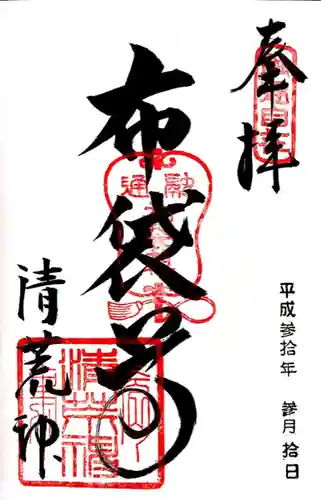 奉拝
布袋尊
清荒神
平成参拾年 参月拾日
融通
清荒神